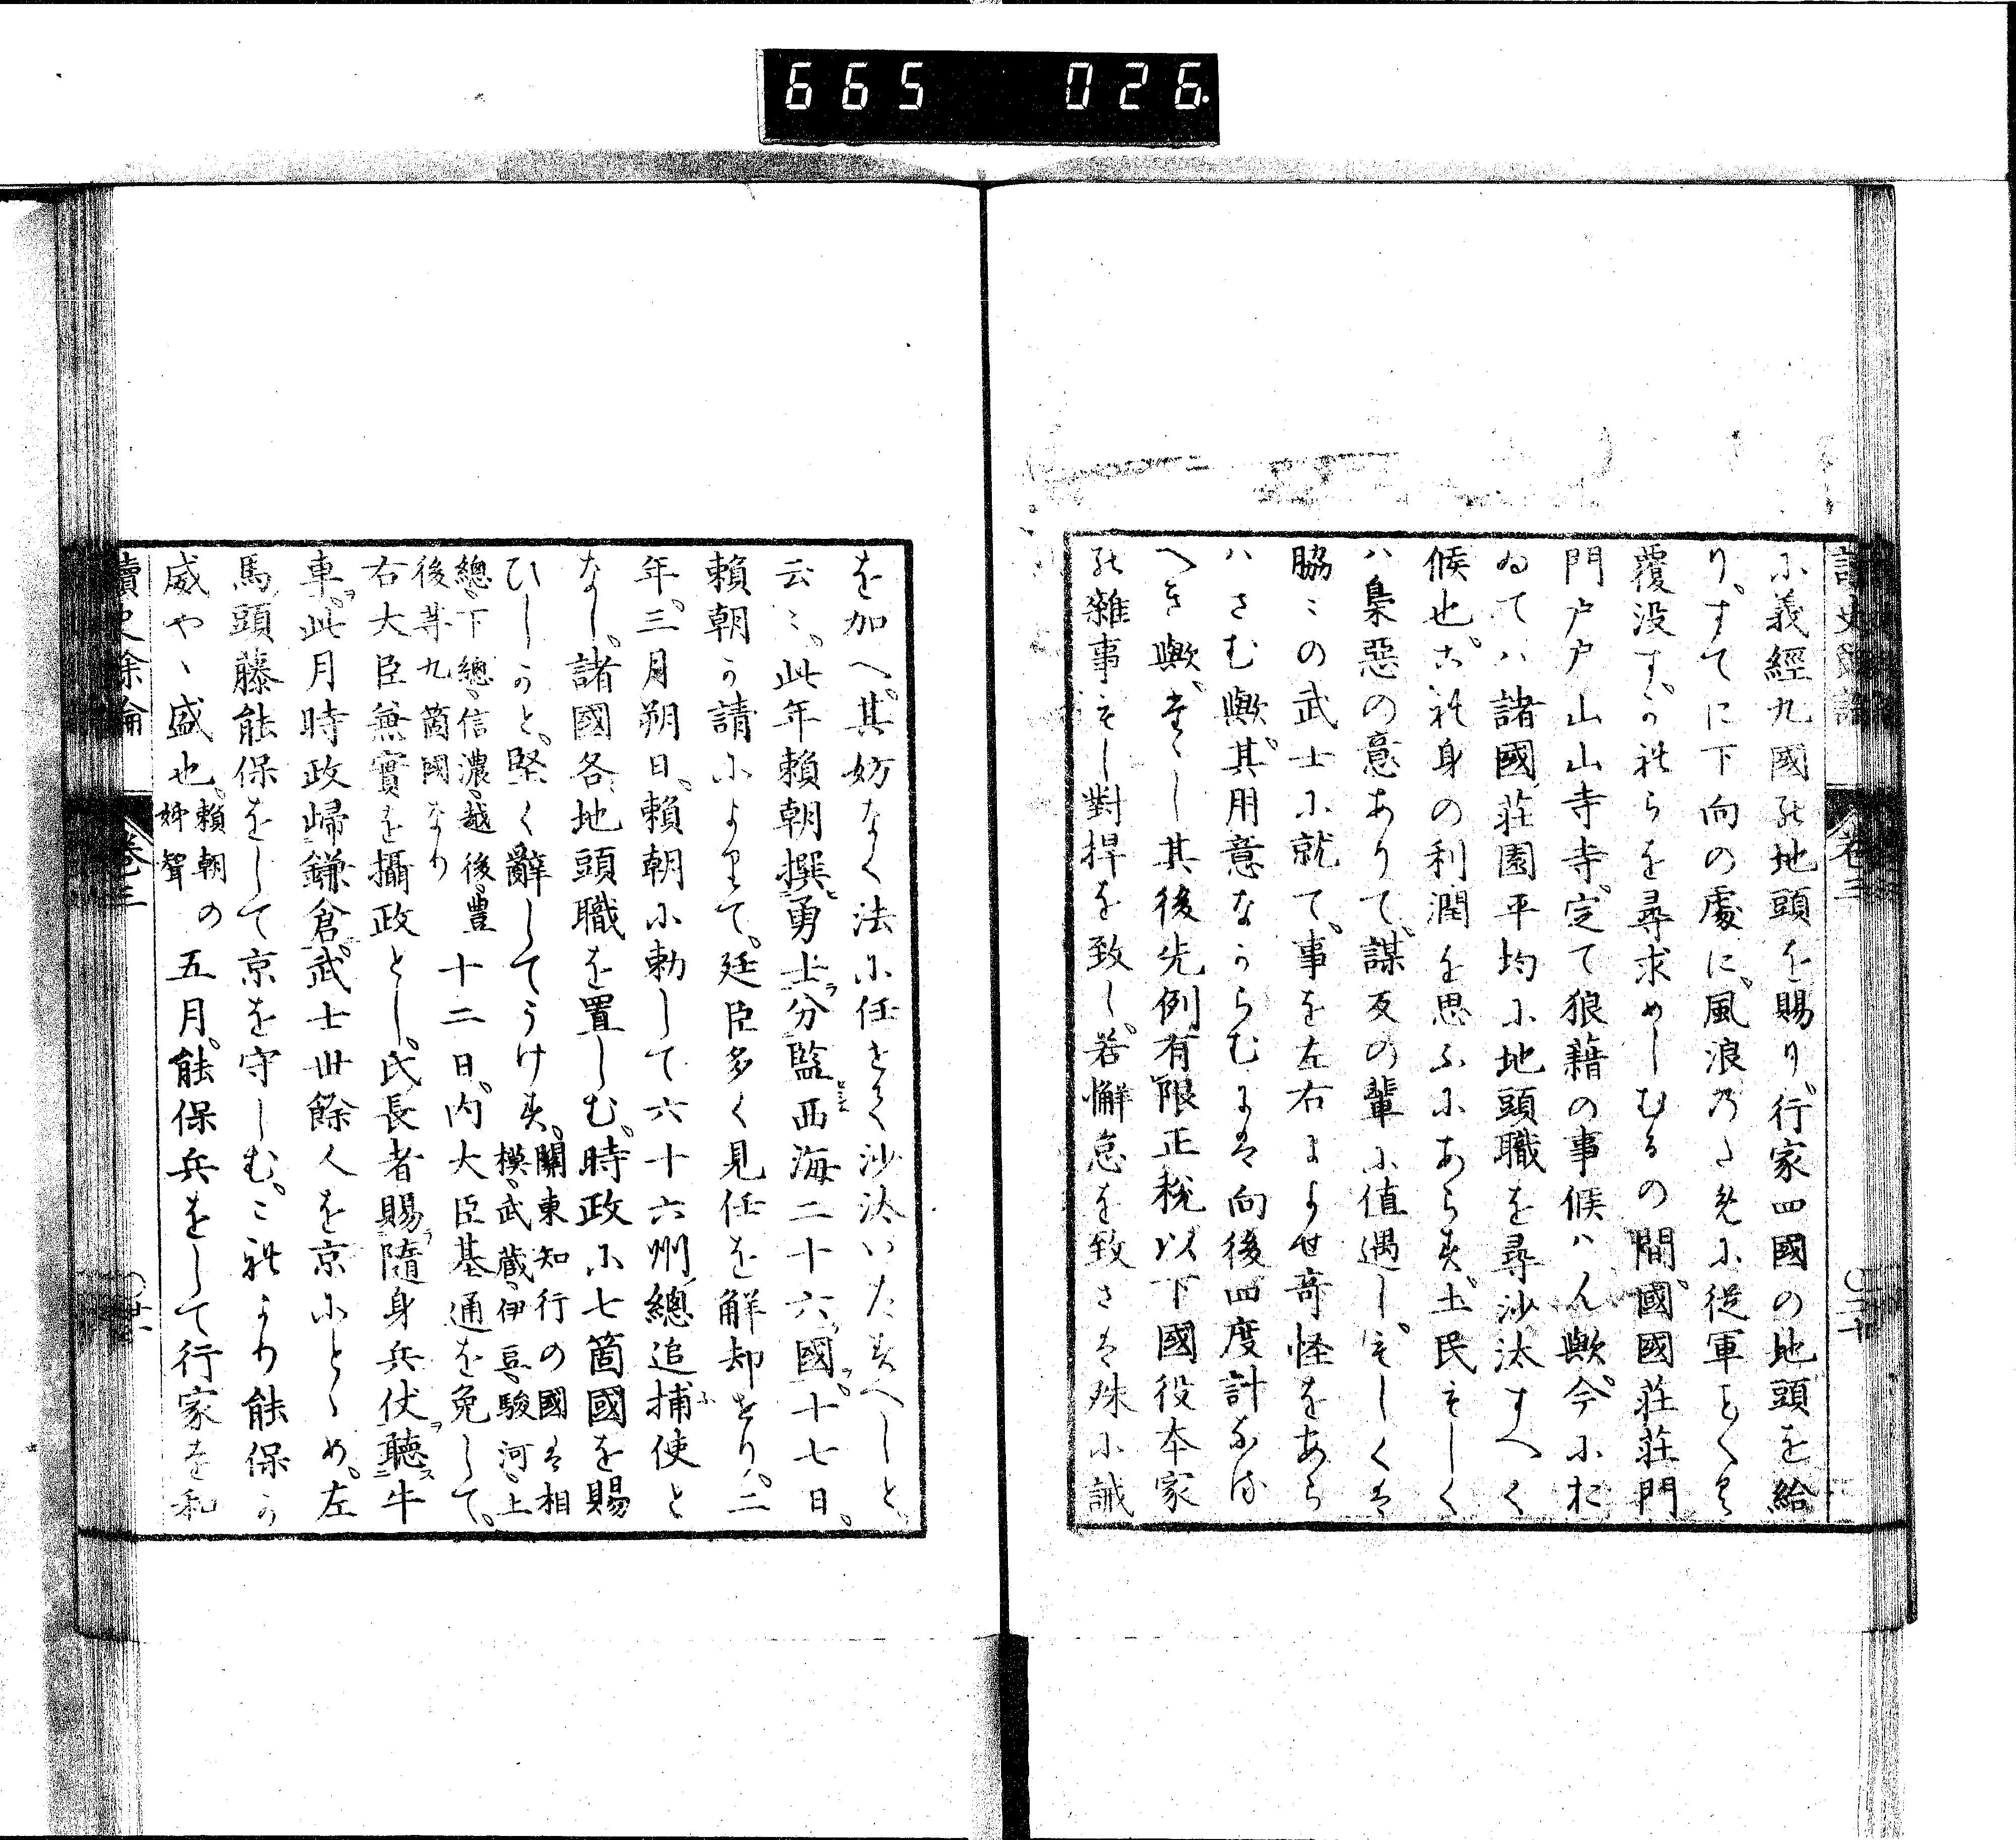 665 026.
讀史餘論 卷三
に義經九國の地頭を賜り行家四國の地頭を給
り。すてに下向の處に。風浪のために從軍ことく
覆没す。かれらを尋求めしむるの間。國國荘荘門
門戸戸山山寺寺。定て狼藉の事候ハん歟。今にお
ゐてハ諸國荘園平均に地頭職を尋沙汰すへく
候也。これ身の利潤を思ふにあらす。土民もしく
ハ梟惡の意ありて。謀反の輩に値遇し。もしくは
脇〻の武士に就て。事を左右によせ奇怪をあら
ハさむ歟。其用意なからむには向後四度計なけ
へき歟。たゝし其後先例有限正税以下國役本家
の雜事もし對捍を致し。若懈怠を致さは殊に誡
を加へ。其妨なく法に任せて沙汰いたすへしと。
云〻。此年賴朝撰勇士分監西海二十六國。十七日。
賴朝か請によりて。廷臣多く見任を解却せり。二
年。三月朔日。賴朝に勅して六十六州總追捕使と
なし。諸國各地頭職を置しむ。時政に七箇國を賜
ひしかと。堅く辭してうけす。關東知行の國は相
模武藏伊豆駿河上
總下總信濃越後豊
後等九箇國なり 十二日。内大臣基通を免して。
右大臣兼實を攝政とし。氏長者賜隨身兵仗聽牛
車。此月時政歸鎌倉。武士卅餘人を京にとゝめ。左
馬頭藤能保をして京を守しむ。これより能保か
威やゝ盛也。賴朝の
姉聟 五月。能保兵をして行家を和
讀史餘論 卷三